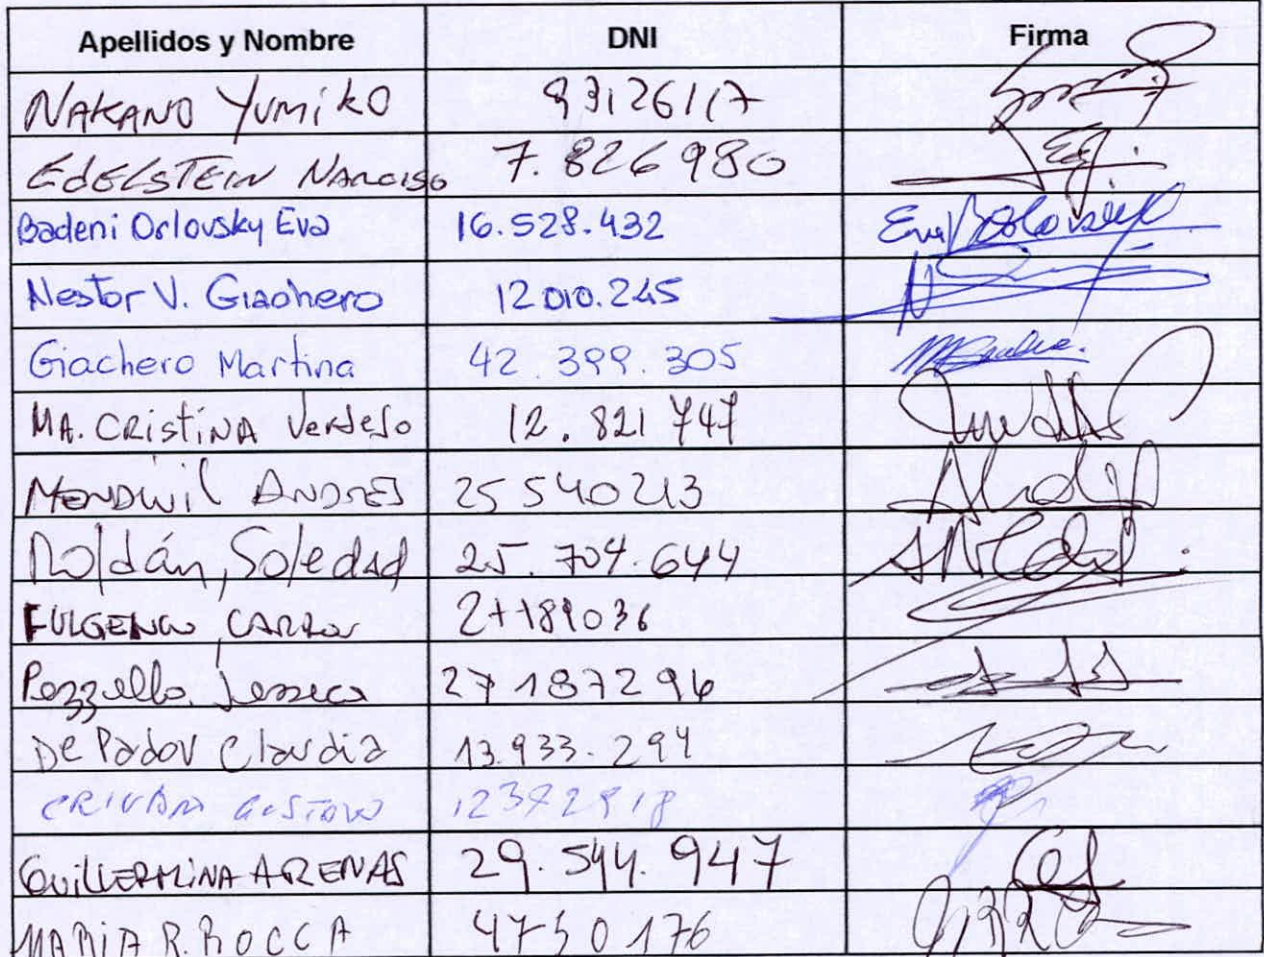 Apellidos y Nombre DNI Firma
NAKANO YUMIKO 93126117
EDELSTEIN NARCISO 7.826980
Badeni Orlovsky Eva 16.528.432
Nestor V. Giachero 12010.245
Giachero Martina 42.399.305
MA. CRISTINA Verdejo 12.821747
ANDRES 25540213
Roldán, Soledad 25.704.644
FULGENCIO, CARLOS 27189036
Pezzella Jessica 27187296
De Padov Claudia 13.933.294
GUSTAVO
GUILLERMINA ARENAS 29.544.947
MARIA R. ROCCA 4750176